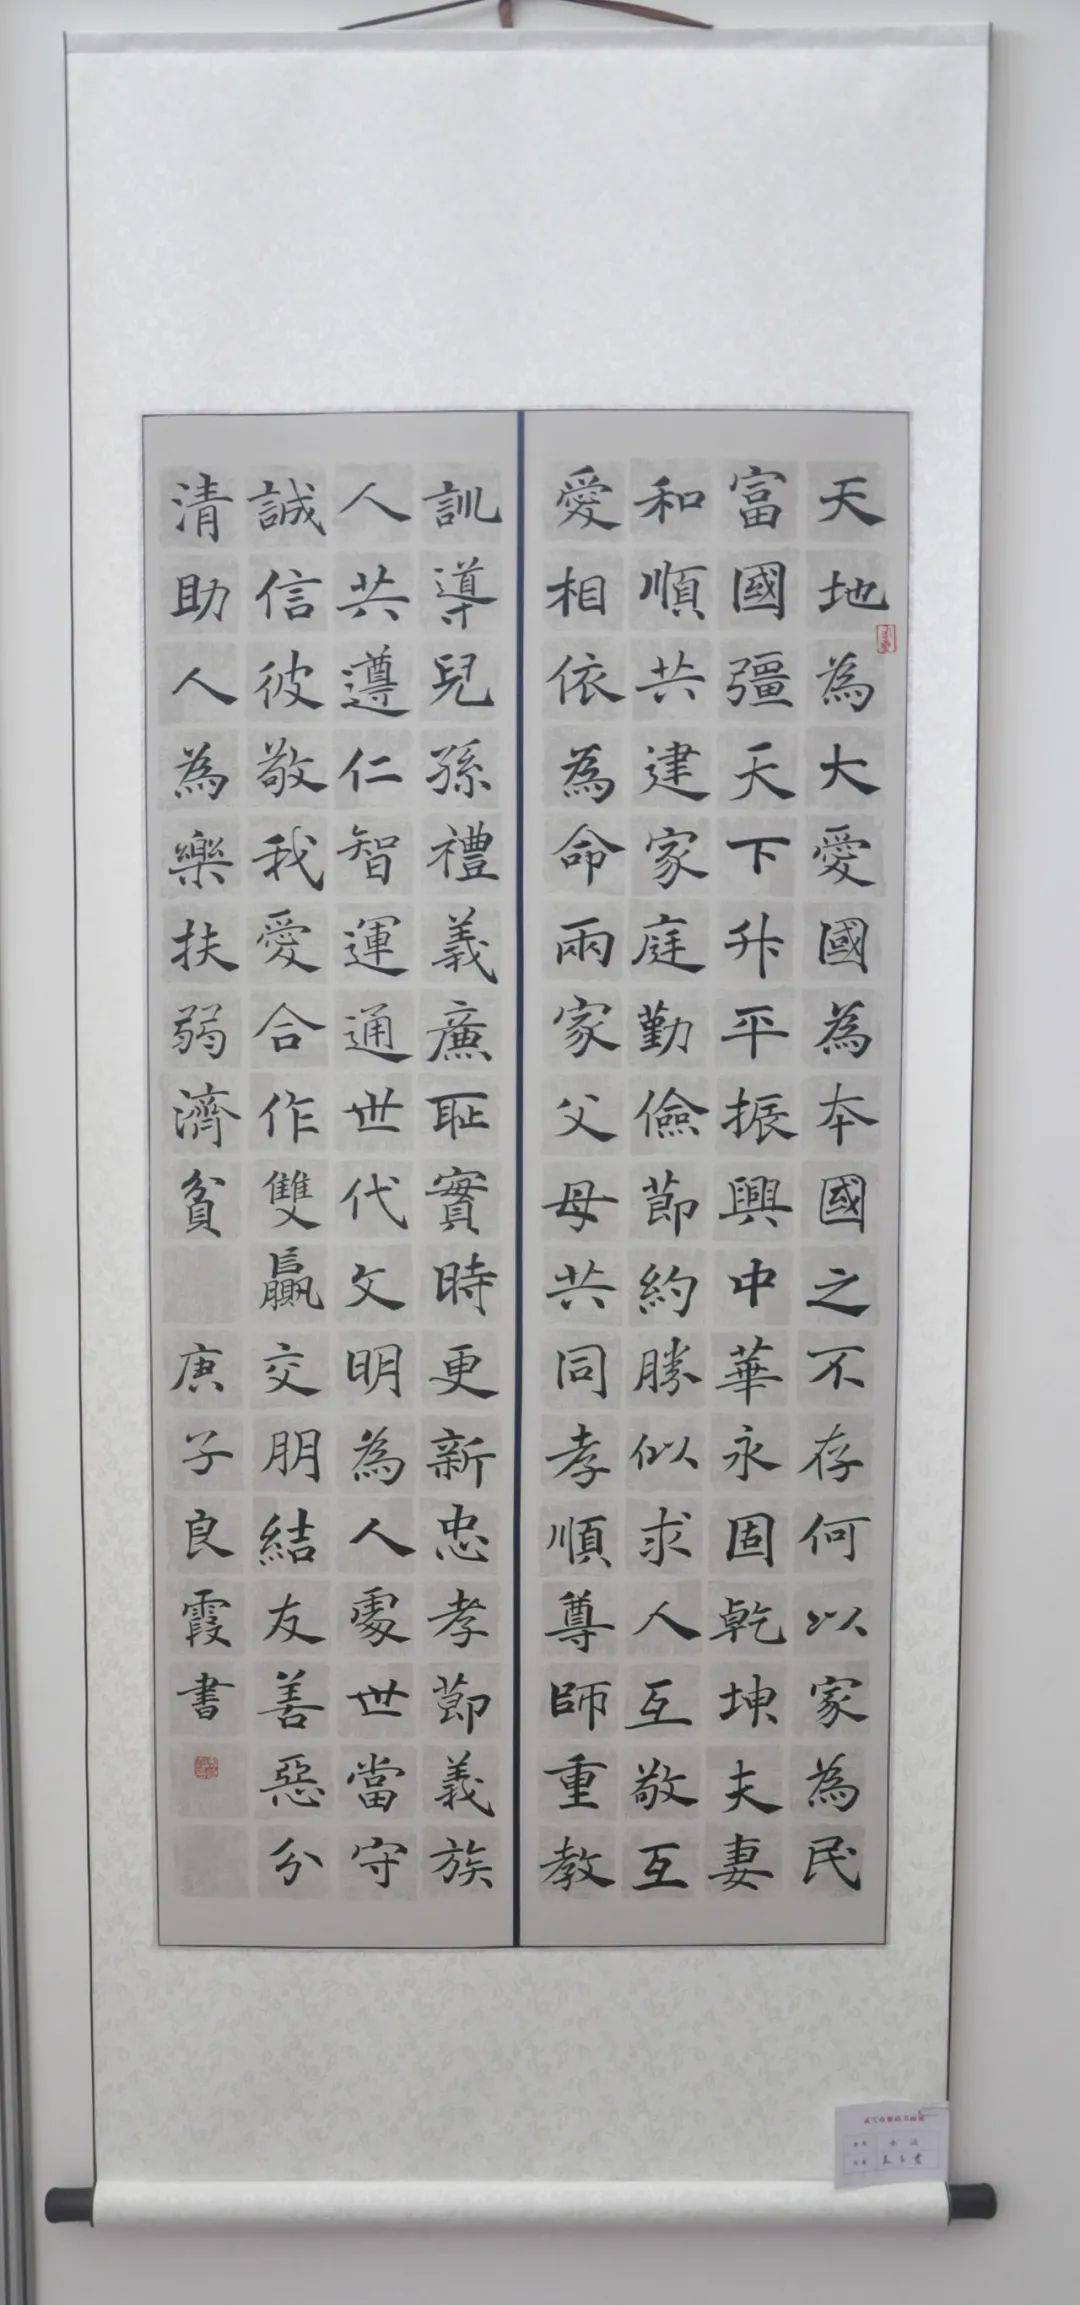 天地為大愛國為本國之不存何以家為民
富國彊天下升平振興中華永固乾坤夫妻
和順共建家庭勤儉節約勝似求人互敬互
愛相依為命兩家父母共同孝順尊師重教
訓導兒孫禮義廉恥實時更新忠孝節義族
人共遵仁智運通世代文明為人處世當守
誠信彼敬我愛合作雙贏交朋結友善惡分
清助人為樂扶弱濟貧
庚子良霞書